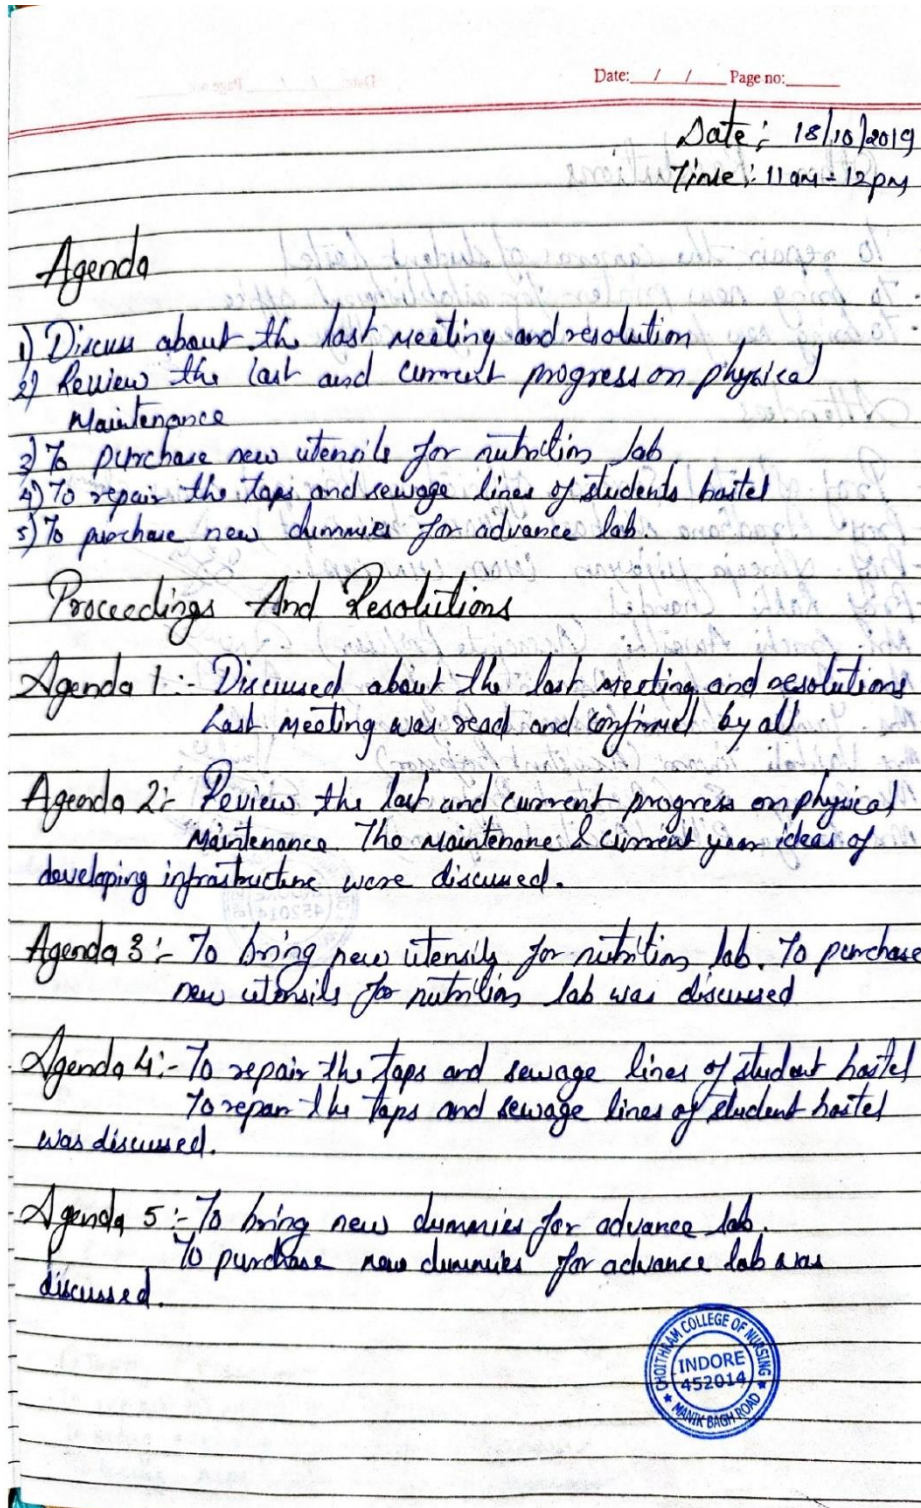 Date: / / Page no:
Date: 18/10/2019
Time: 11am - 12pm
Agenda
1) Discuss about the last meeting and resolution
2) Review the last and current progress on physical
Maintenance
3) To purchase new utensils for nutrition lab
4) To repair the taps and sewage lines of students hostel
5) To purchase new dummies for advance lab.
Proceedings And Resolutions
Agenda 1:- Discussed about the last meeting and resolutions
Last meeting was read and confirmed by all
Agenda 2:- Review the last and current progress on physical
Maintenance. The Maintenane & current year ideas of
developing infrastructure were discussed.
Agenda 3:- To bring new utensils for nutrition lab. To purchase
new utensils for nutrition lab was discussed
Agenda 4:- To repair the taps and sewage lines of student hostel
To repair the taps and sewage lines of student hostel
was discussed.
Agenda 5:- To bring new dummies for advance lab.
To purchase new dummies for advance lab was
discussed.
CHOITHRAM COLLEGE OF NURSING
INDORE
452014
★ MANIK BAGH ROAD ★